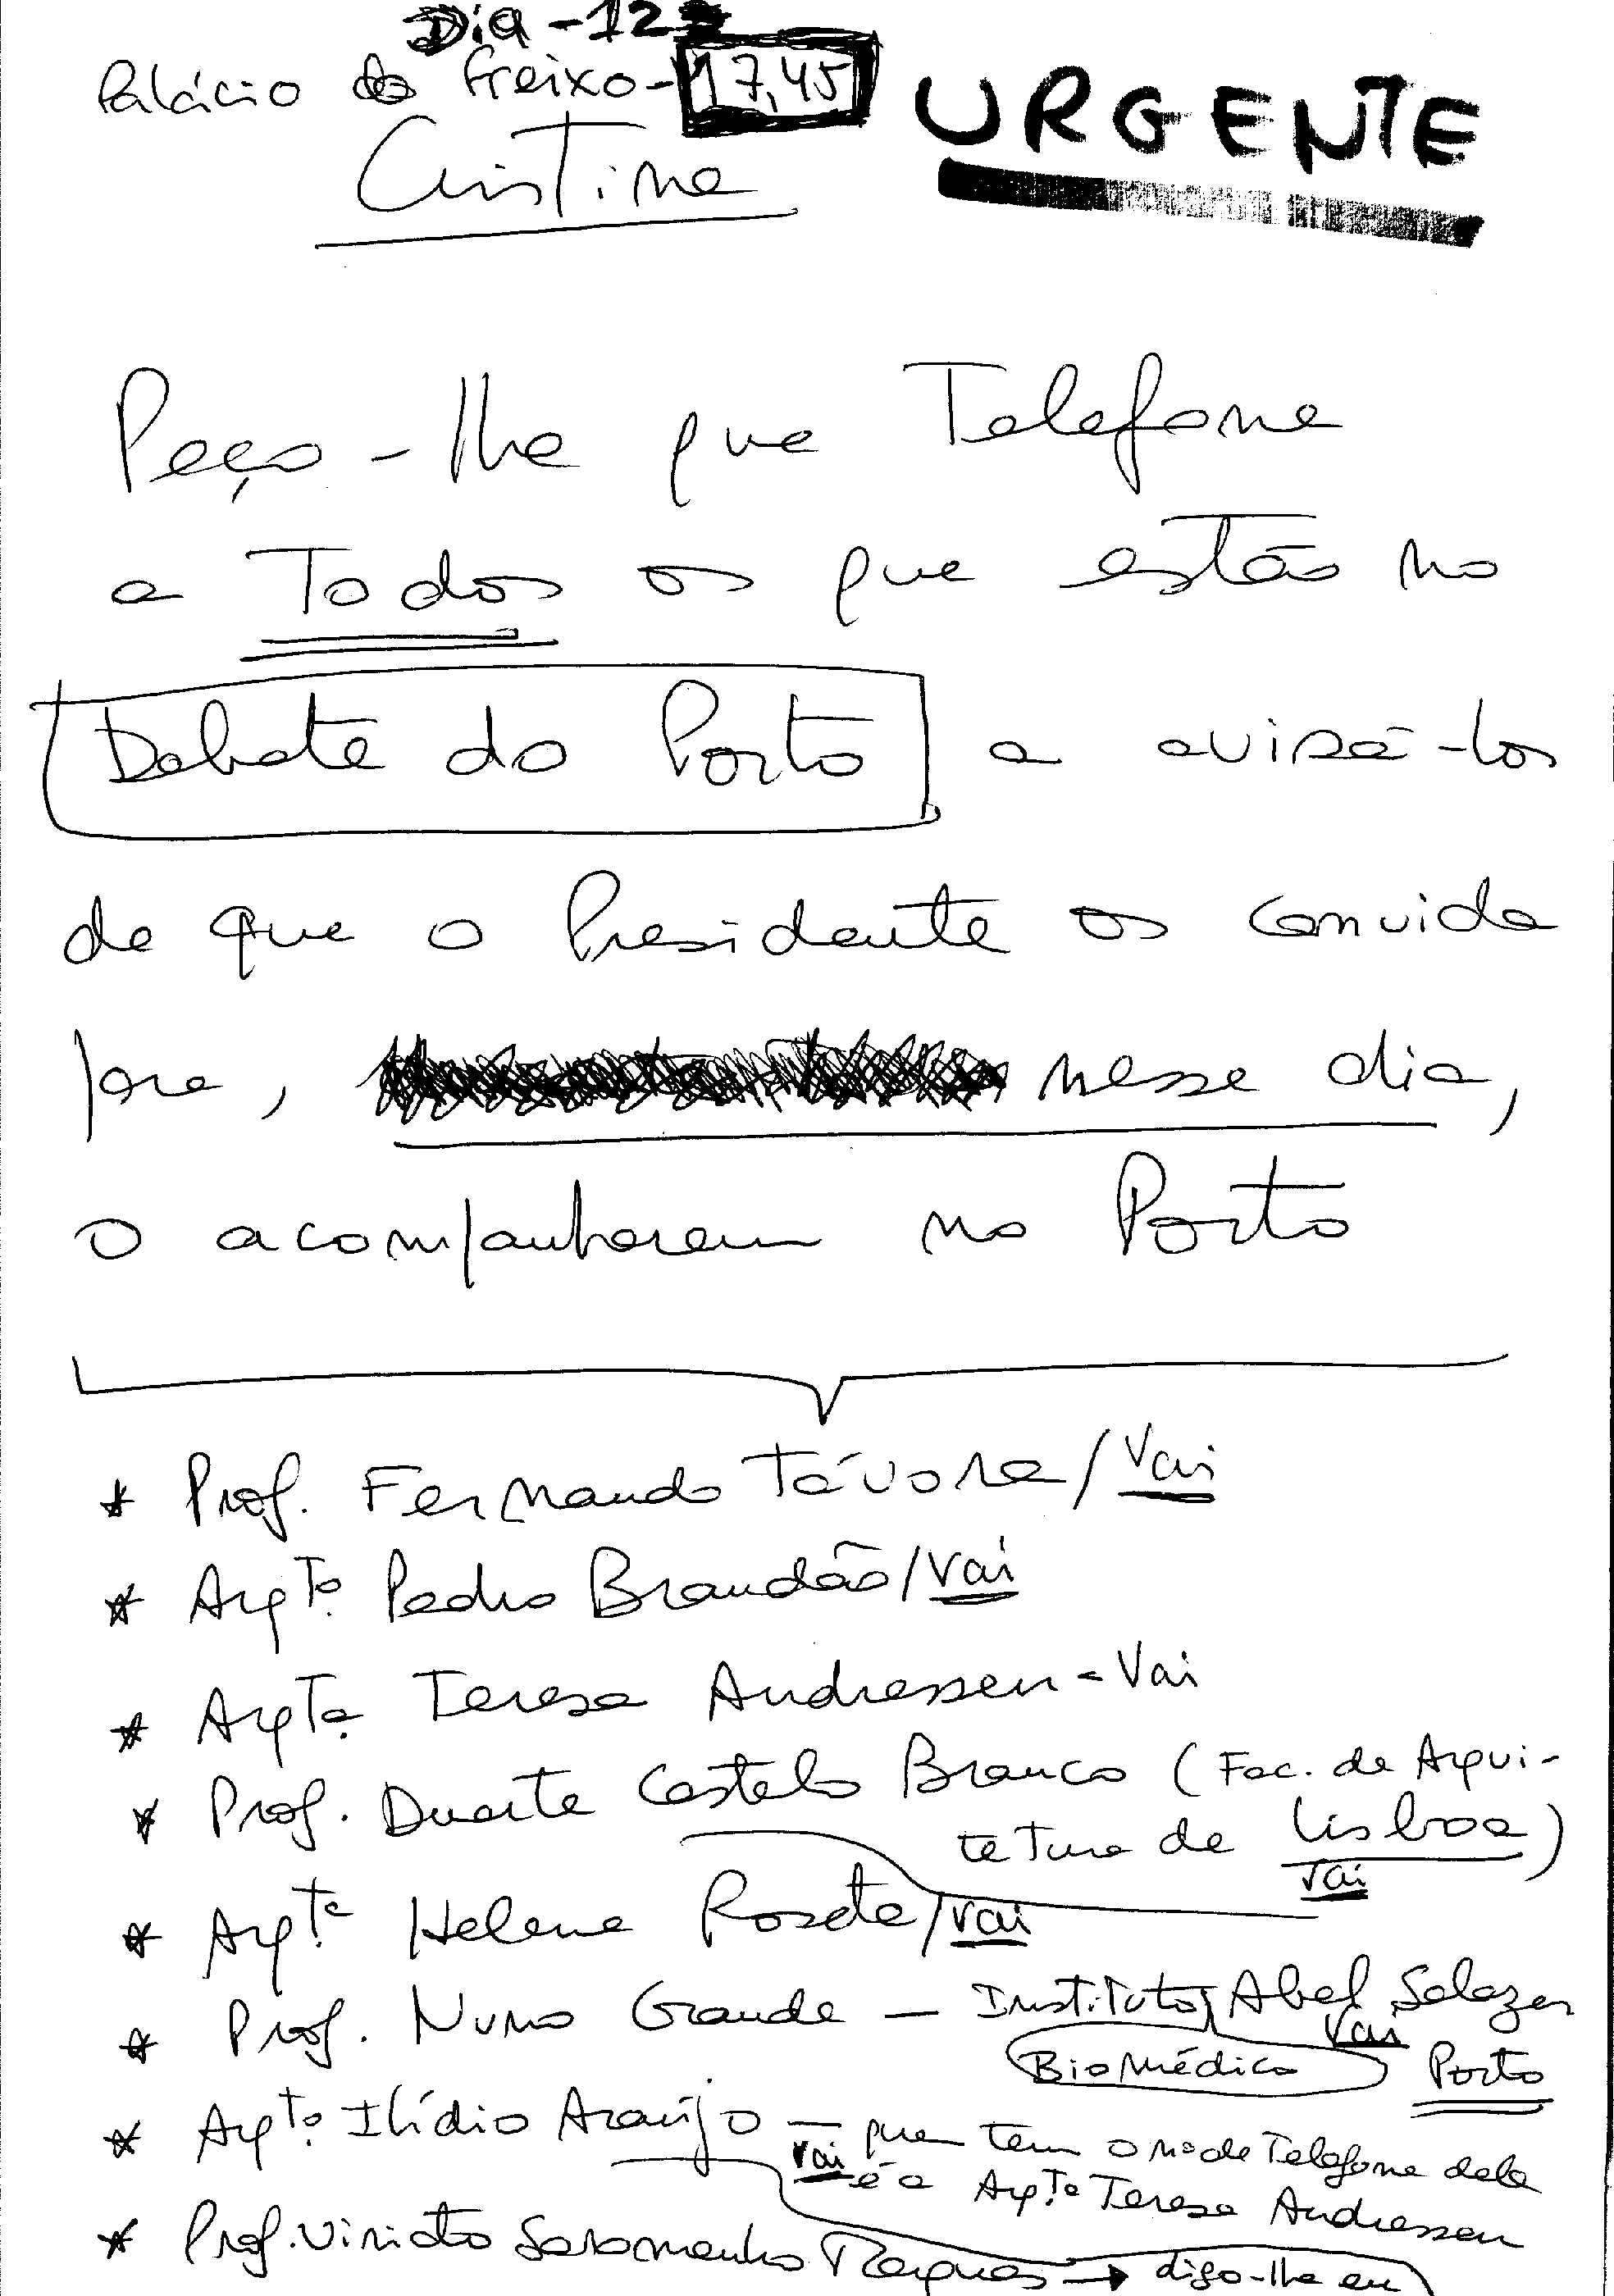 Dia - 12
Palácio do Freixo - 17,45
URGENTE
Cristina
Peço-lhe que Telefone
a Todos os que estão no
Debate do Porto a avisá-los
de que o Presidente os convida
para, nesse dia,
o acompanharem no Porto
* Prof. Fernando Távora / Vai
* Arqto. Pedro Brandão / Vai
* Arqta. Teresa Andressen - Vai
* Prof. Duarte Castelo Branco (Fac. de Arqui-
tetura de Lisboa)
Vai
* Arqta. Helena Roseta / Vai
* Prof. Nuno Grande - Instituto Abel Salazar
Vai
BioMédico Porto
* Arqto. Ilídio Araújo - quem tem o nº de Telefone dele
Vai é a Arqta Teresa Andressen
* Prof. Viriato Soromenho Marques → digo-lhe eu